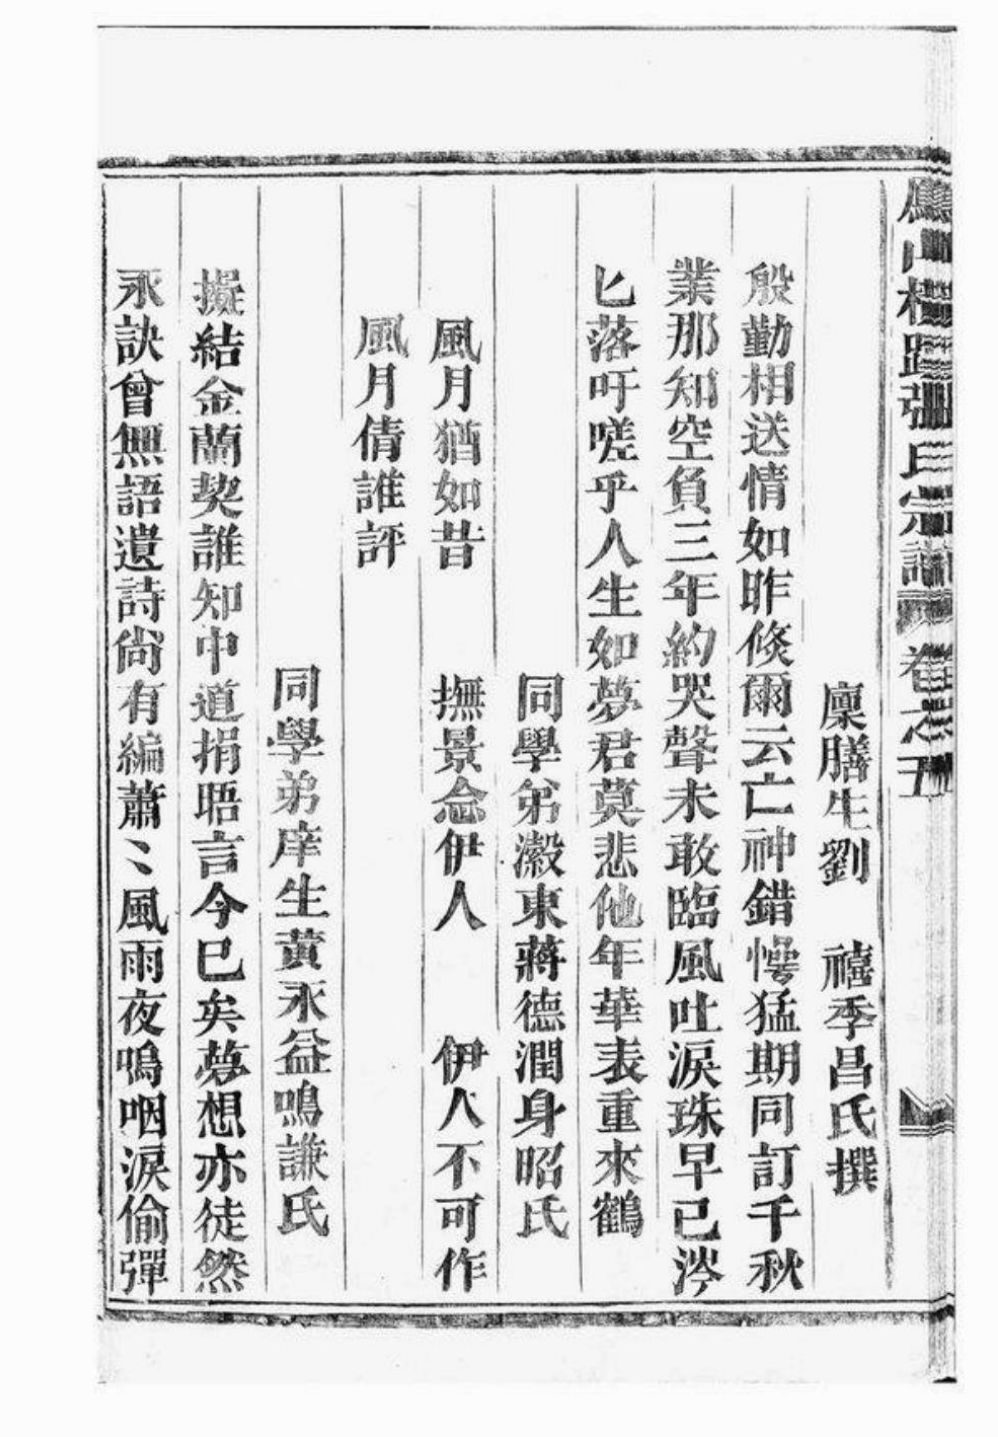 張氏宗譜 卷之五
廩膳生劉 禧季昌氏撰
殷勤相送情如昨倐爾云亡神錯愕猛期同訂千秋
業那知空負三年約哭聲未敢臨風吐淚珠早已涔
匕落吁嗟乎人生如夢君莫悲他年華表重來鶴
同學弟瀫東蔣德潤身昭氏
風月猶如昔 撫景念伊人 伊人不可作
風月倩誰評
同學弟庠生黃永益鳴謙氏
擬結金蘭契誰知中道捐晤言今巳矣夢想亦徒然
永訣曾無語遺詩尙有編蕭〻風雨夜嗚咽淚偷彈